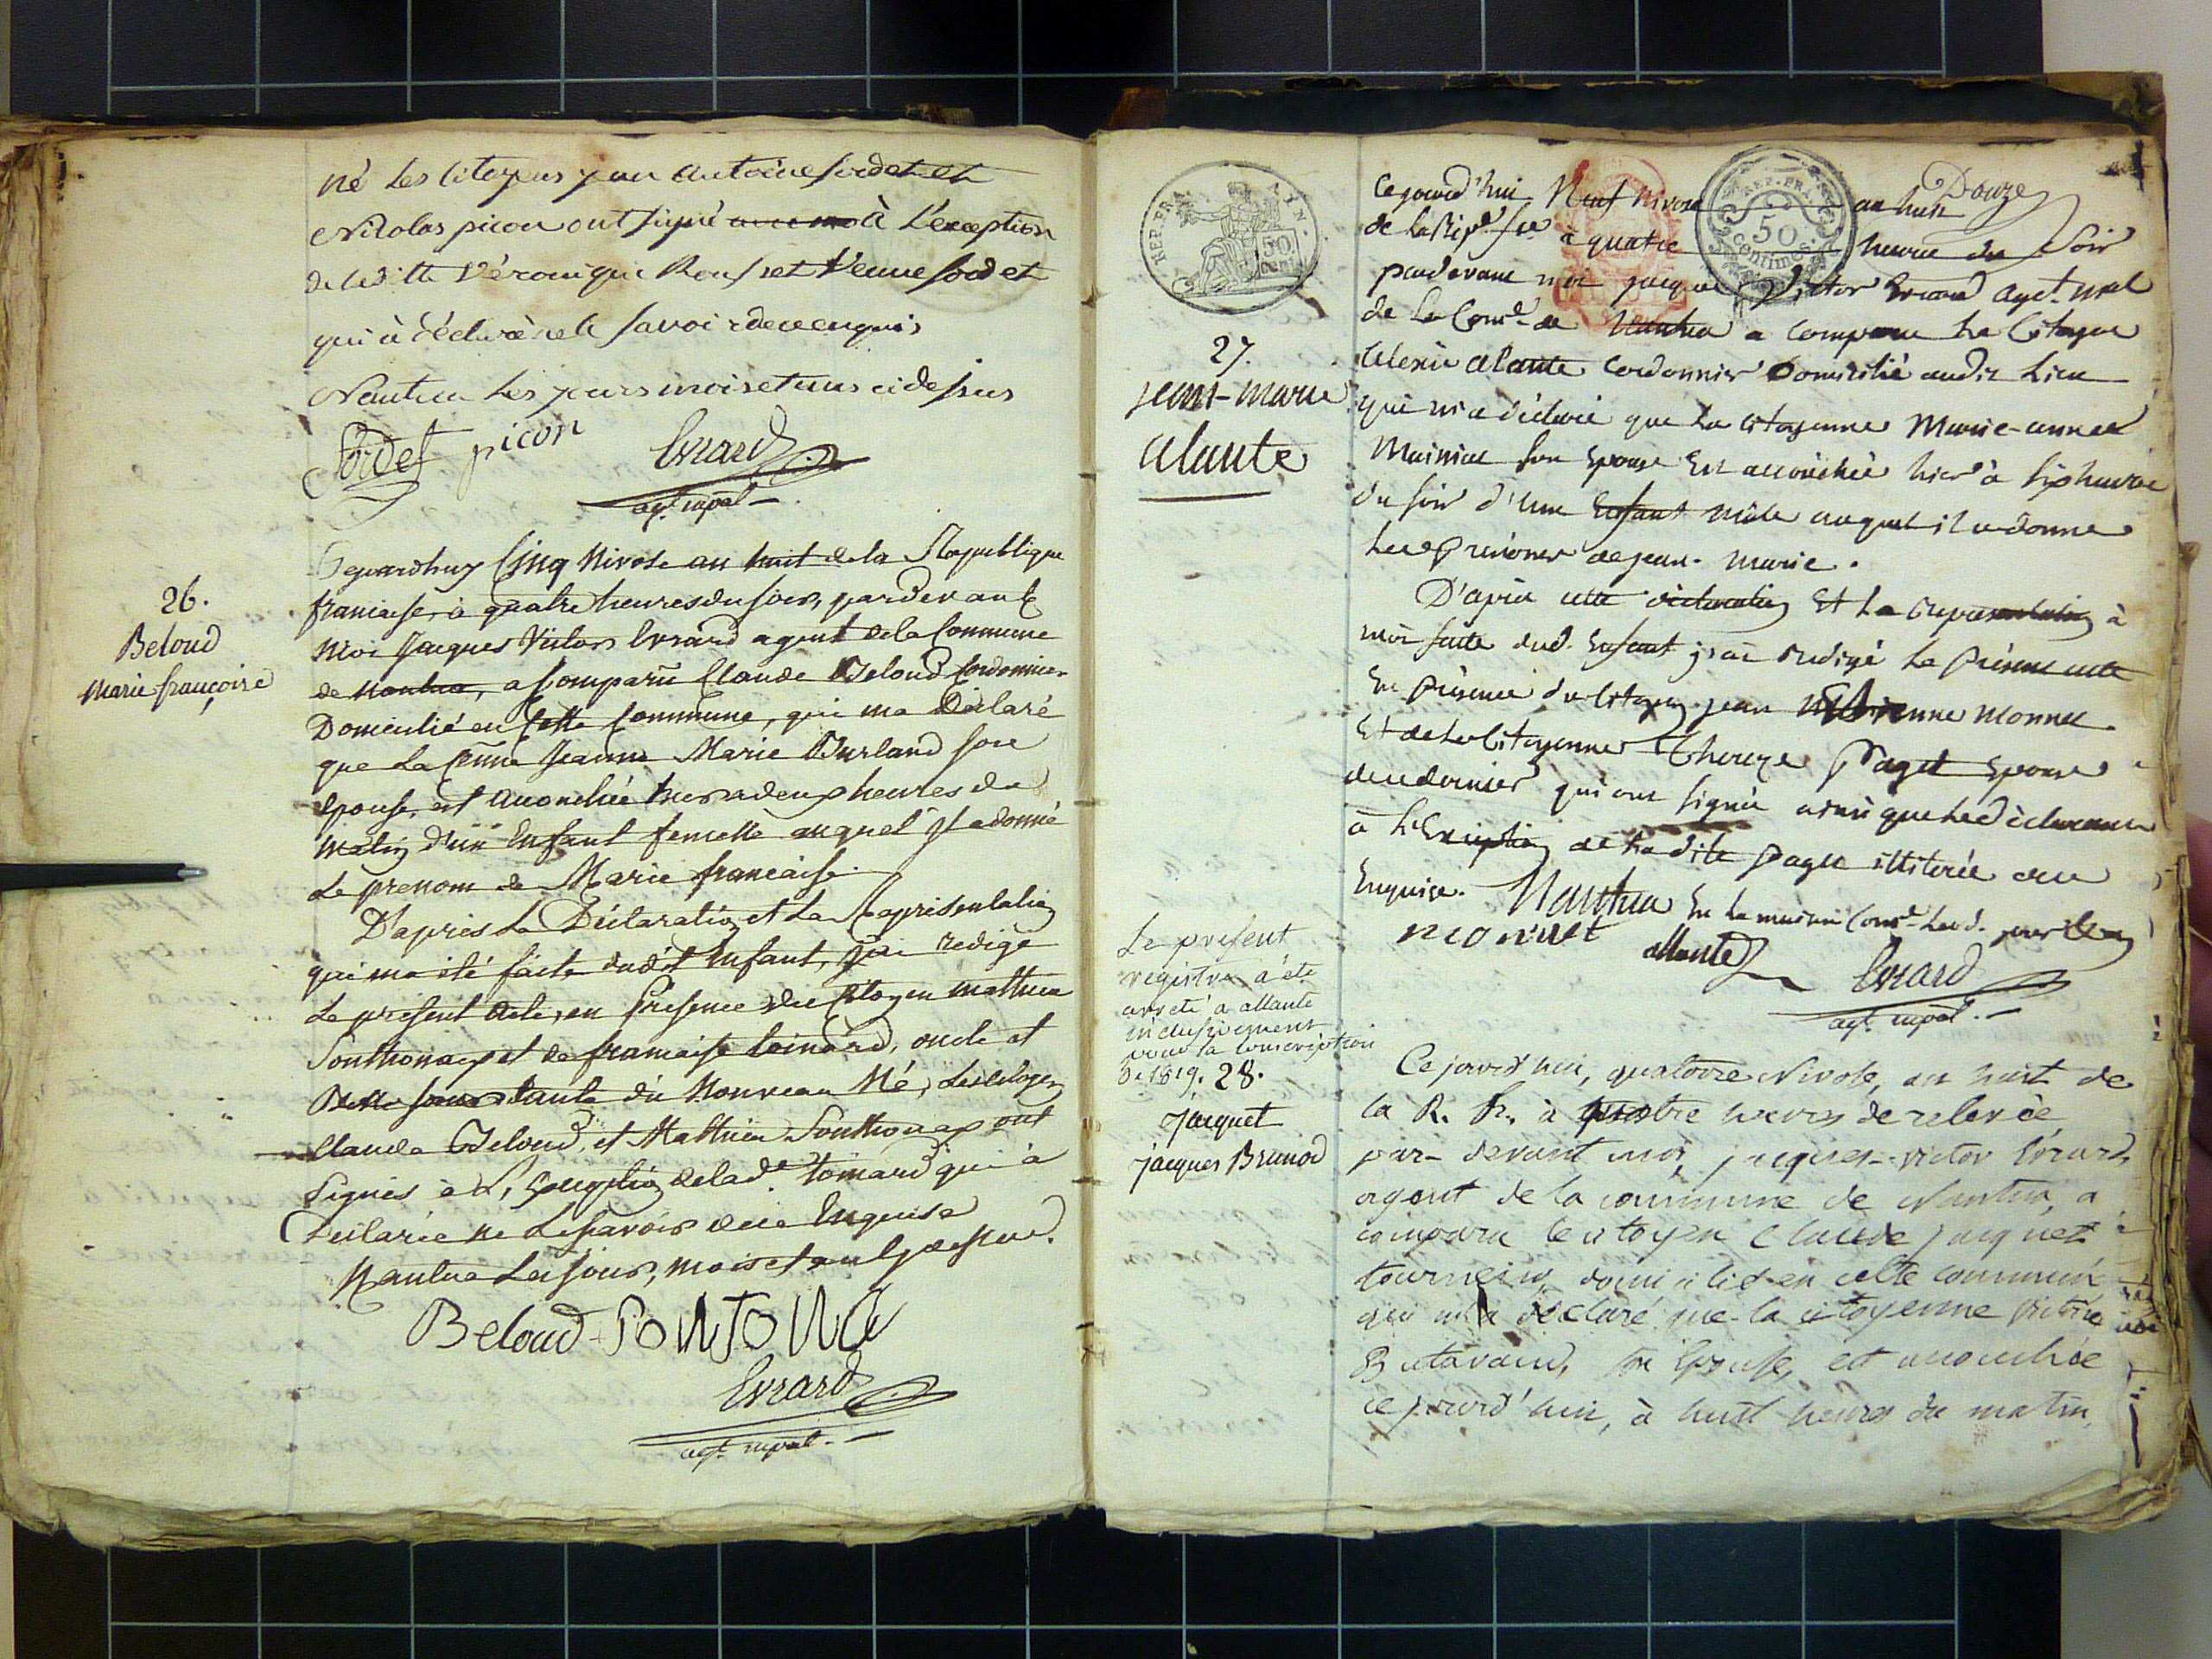 né Les Citoyens jean antoine sordet et
Nicolas picon ont signé à L'exception
de laditte Véronique Roux et Veuve sordet
qui à déclaré ne le savoir de ce enquis
Nantua Les jours mois et ans ci dessus
Sordet picon Evrard
agt. mpal
26.
Beloud
Marie françoise
Cejourdhuy Cinq Nivose an huit de la Republique
francaise, à quatre heures du soir, pardevant
Moi Jacques Victor Evrard agent de la Commune
de Nantua, a Comparu Claude Beloud Cordonnier
Domicilié en Cette Commune, qui ma Déclaré
que La Cenne Jeanne Marie Burland son
épouse, est accouchée hier a deux heures du
Matin d'un Enfant femelle auquel Il a donné
Le prenom de Marie francaise.
D'apres La Déclaration et La Representation
qui ma été faite dudit Enfant, J'ai redigé
Le present acte, en Presence du Citoyen Mathieu
Sonthonax et de francaise toinard, oncle et
tante du Nouveau Né, Les Citoyens
Claude Beloud, et Mathieu Sonthonax ont
Signés à L'Exception de lade. toinard qui a
Declarée ne Le savoir de ce Enquise
Nantua Les jour, mois et an Cydessus.
Beloud SONTONA
Evrard
agt. mpal.
REP. FRA.
50
cent.
27.
jean-marie
alante
Douze
REP. FRA.
50
centimes.
Cejourd'hui Neuf Nivose an huit
de la Repe. fse à quatre heures du Soir
pardevant moi jacques Victor Evrard Agt. mpal
de La Come. de Nantua a comparu Le Citoyen
alexis alante Cordonnier Domicilié audit Lieu
qui m'a déclaré que La Citoyenne Marie-anne
Mainial son Epouse Est accouchée hier à six heures
du soir d'un Enfant mâle auquel il a donné
Les prénoms de jean-marie.
D'après cette déclaration Et La représentation à
moi faite dud. Enfant j'ai redigé Le présent acte
En présence du Citoyen jean Etienne Monnet
Et de La Citoyenne Thereze Paget Epouse
de ce dernier qui ont signés ainsi que Le déclarant
à L'Exception de La dite paget illiterée de ce
Enquise. Nantua En La maison Come. Lesd. jour
monnet allante Evrard
agt. mpal.
Le présent
registre a été
arrêté a allante
inclusivement
pour la conscription
de 1819.
28.
Jacquet
jacques Brunod
Ce jourd'hui, quatorze Nivose, an huit de
la R. fr. à quatre heures de relevée
par-devant moi, jacques-victor Evrard,
agent de la commune de Nantua, a
comparu le citoyen Claude jacquet
tourneur, domicilié en cette commune
qui m'a déclaré que la citoyenne
son Epouse, est accouchée
ce jourd'hui, à huit heures du matin,